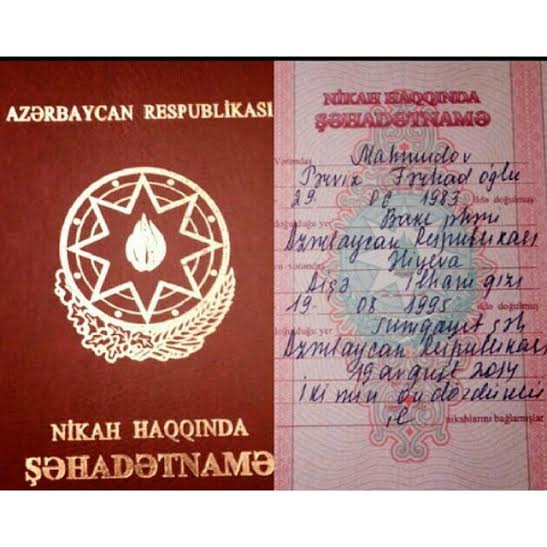 AZƏRBAYCAN RESPUBLİKASI
NİKAH HAQQINDA
ŞƏHADƏTNAMƏ
NİKAH HAQQINDA
ŞƏHADƏTNAMƏ
Vətəndaş Mahmudov
Pərviz Fərhad oğlu
29 06 1983 ildə doğulmuş
doğulduğu yer Bakı şəhəri
Azərbaycan Respublikası
və vətəndaş Əliyeva
Ilham qızı
19 08 1995 ildə doğulmuş
doğulduğu yer Sumqayıt şəh
Azərbaycan Respublikası
19 avqust 2014
iki min on dördüncü
il nikahlarını bağlamışlar